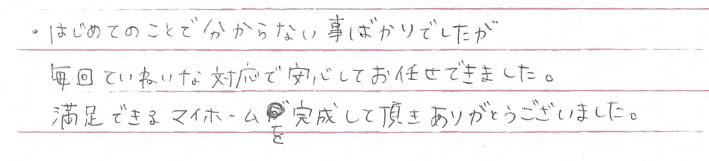 ・はじめてのことで分からない事ばかりでしたが
毎回ていねいな対応で安心してお任せできました。
満足できるマイホームを完成して頂きありがとうございました。